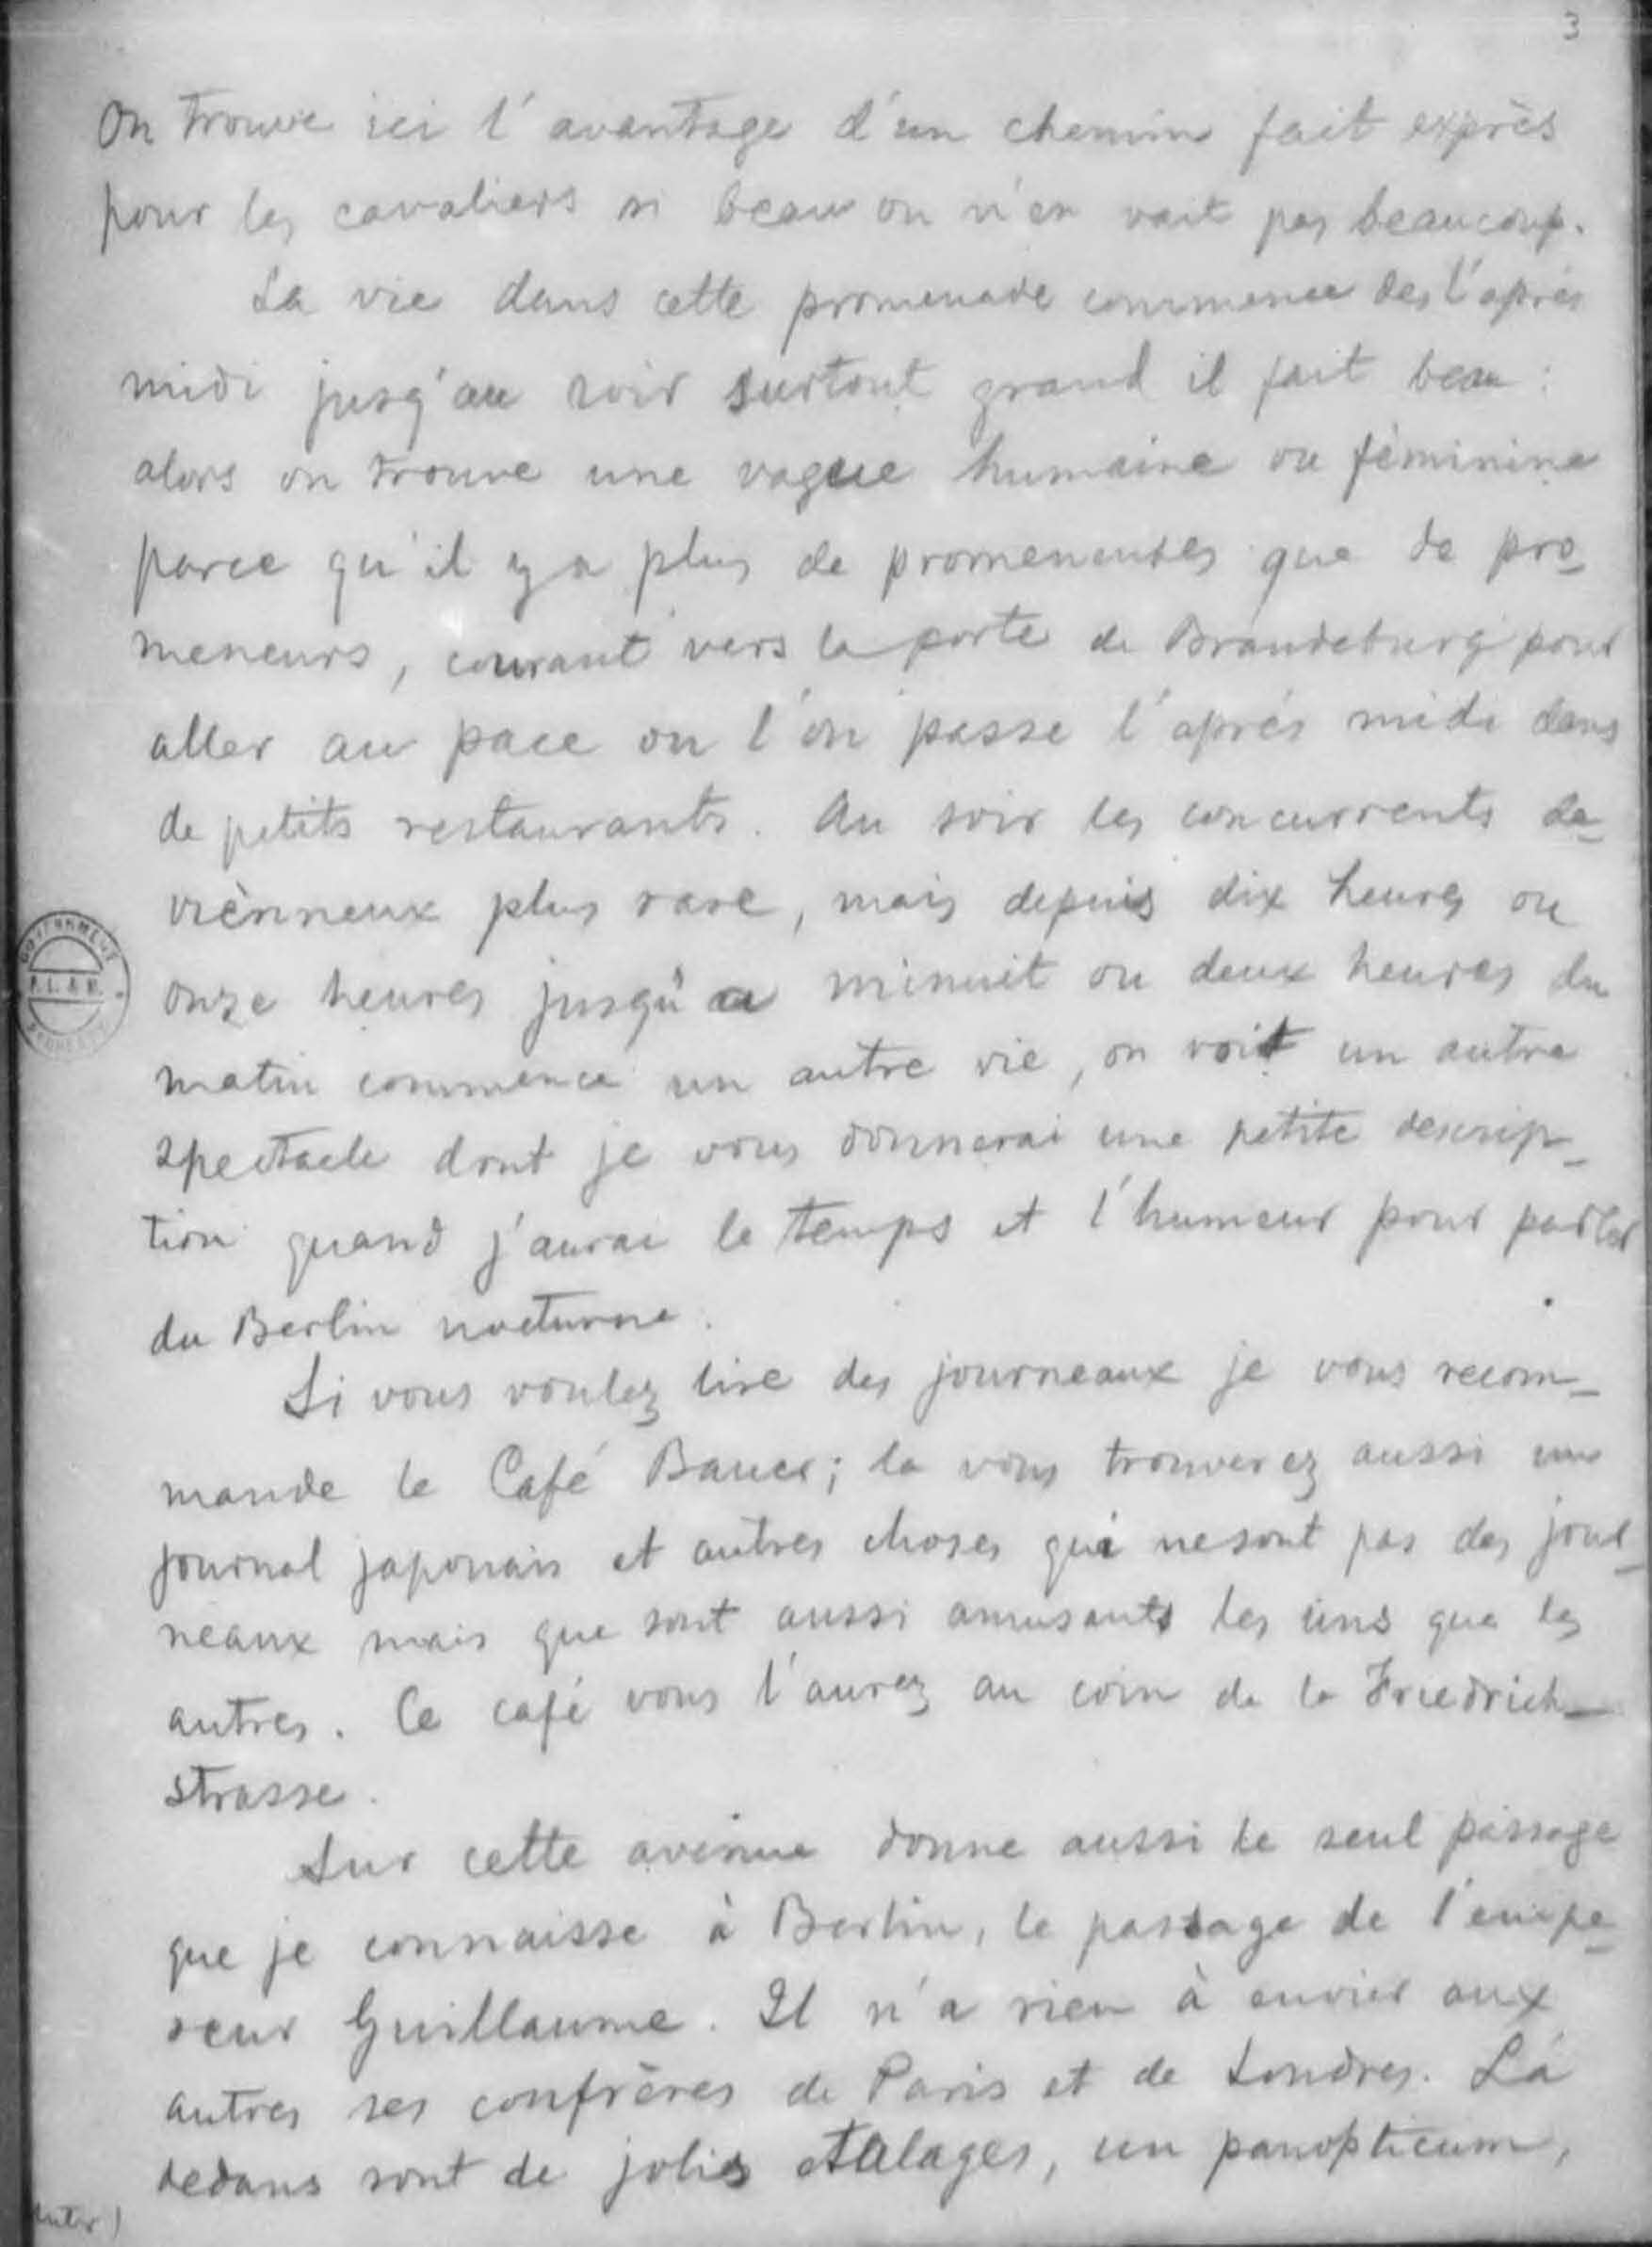 3
On trouve ici l'avantage d'un chemin fait exprès
pour les cavaliers si beau on n'en voit pas beaucoup.
La vie dans cette promenade commence des l'après
midi jusq'au soir surtout quand il fait beau:
alors on trouve une vague humaine ou féminine
parce qu'il y a plus de promeneuses que de pro-
meneurs, courant vers la porte de Brandeburg pour
aller au pace ou l'on passe l'après midi dans
de petits restaurants. Au soir les concurrents de-
viènneux plus rare, mais depuis dix heures ou
onze heures jusqu'a minuit ou deux heures du
matin commence un autre vie, on voit un autre
spectacle dont je vous donnerai une petite descrip-
tion quand j'aurai le temps et l'humeur pour parler
du Berlin nocturne.
Si vous voulez lire des journeaux je vous recom-
mande le Café Bauer; la vous trouverez aussi un
journal japonais et autres choses qui ne sont pas des jour-
neaux mais que sont aussi amusants les uns que les
autres. Ce café vous l'aurez au coin de la Friedrich-
strasse.
Sur cette avenue donne aussi le seul passage
que je connaisse à Berlin, le passage de l'empe-
reur Guillaume. Il n'a rien à envier aux
autres ses confrères de Paris et de Londres. Là
dedans sont de jolies étalages, un panopticum,
GOVERNMENT
P.L.&M.